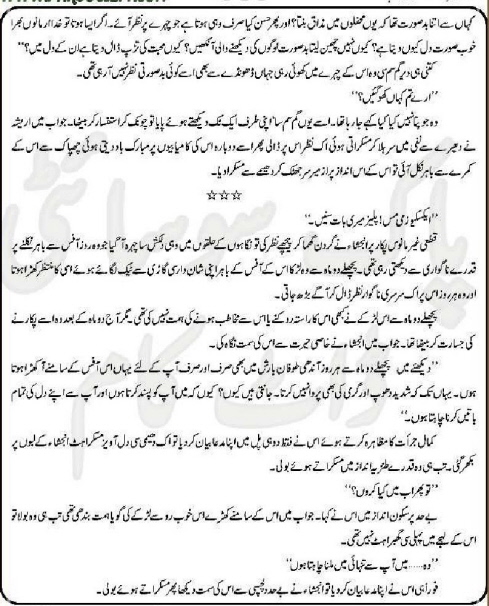 کہاں سے اتنا بدصورت تھا کہ یوں محفلوں میں مذاق بنتا؟ اور پھر حسن کیا صرف وہی ہوتا ہے جو چہرے پر نظر آئے۔ اگر ایسا ہوتا تو خدا ارمانوں بھرا
خوب صورت دل کیوں دیتا ہے؟ کیوں نہیں چھین لیتا بدصورت لوگوں کی دیکھنے والی آنکھیں؟ کیوں محبت کی تڑپ ڈال دیتا ہے ان کے دل میں؟“
کتنی ہی دیر گم صم سی وہ اس کے چہرے میں کھوئی رہی جہاں ڈھونڈے سے بھی اسے کوئی بدصورتی نظر نہیں آ رہی تھی۔
”ارے تم کہاں کھو گئیں؟“
وہ جو پتا نہیں کیا کیا کہے جا رہا تھا۔ اسے یوں گم صم سا اپنی طرف ایک ٹک دیکھتے ہوئے پایا تو چونک کر استفسار کر بیٹھا۔ جواب میں اریشہ
نے دھیرے سے نفی میں سر ہلا کر مسکراتی ہوئی اک نظر اس پر ڈالی پھر اسے دوبارہ اس کی کامیابیوں پر مبارک باد دیتی ہوئی چھپاک سے اس کے
کمرے سے باہر نکل آئی تو اس کے اس انداز پر ازمیر سر جھٹک کر دھیمے سے مسکرا دیا۔
☆☆☆
”ایکسکیوزمی مس! پلیز میری بات سنیں۔“
قطعی غیر مانوس پکار پر انجشاء نے گردن گھما کر پیچھے نظر کی تو نگاہوں کے حلقوں میں وہی دلکش سا چہرہ آ گیا جو وہ روز آفس سے باہر نکلنے پر
قدرے ناگواری سے دیکھتی رہی تھی۔ پچھلے دو ماہ سے وہ لڑکا اس کے آفس کے باہر اپنی شان دار سی گاڑی سے ٹیک لگائے ہوئے اسی کا منتظر کھڑا ہوتا
اور وہ ہر روز اس پر اک سرسری ناگوار نظر ڈال کر آگے بڑھ جاتی۔
پچھلے دو ماہ سے اس لڑکے نے کبھی اس کا راستہ روکنے یا اس سے مخاطب ہونے کی ہمت نہیں کی تھی۔ مگر آج دو ماہ کے بعد وہ اسے پکارنے
کی جسارت کر بیٹھا تھا۔ جواب میں انجشاء نے خاصی حیرت سے اس کی سمت نگاہ کی۔
”دیکھئے میں پچھلے دو ماہ سے ہر روز آندھی طوفان بارش میں بھی صرف اور صرف آپ کے لئے یہاں اس آفس کے سامنے آ کھڑا ہوتا
ہوں۔ یہاں تک کہ شدید دھوپ اور گرمی کی بھی پروا نہیں کرتا۔ جانتی ہیں کیوں؟ کیوں کہ میں آپ کو پسند کرتا ہوں اور آپ سے اپنے دل کی تمام
باتیں کرنا چاہتا ہوں۔“
کمال جرأت کا مظاہرہ کرتے ہوئے اس نے فقط دو ہی پل میں اپنا مدعا بیان کر دیا تو اک دھیمی سی دل آویز مسکراہٹ انجشاء کے لبوں پر
بکھر گئی۔ تب ہی وہ قدرے طنزیہ انداز میں مسکراتے ہوئے بولی۔
”تو پھر اب میں کیا کروں؟“
بے حد پرسکون انداز میں اس نے کہا۔ جواب میں اس کے سامنے کھڑے اس خوب رو سے لڑکے کی گویا ہمت بندھی تھی تب ہی وہ بولا تو
اس کے لہجے میں پہلی سی گھبراہٹ نہیں تھی۔
”وہ..... میں آپ سے تنہائی میں ملنا چاہتا ہوں“
فوراً ہی اس نے اپنا مدعا بیان کر دیا تو انجشاء نے بے حد دلچسپی سے اس کی سمت دیکھا پھر مسکراتے ہوئے بولی۔